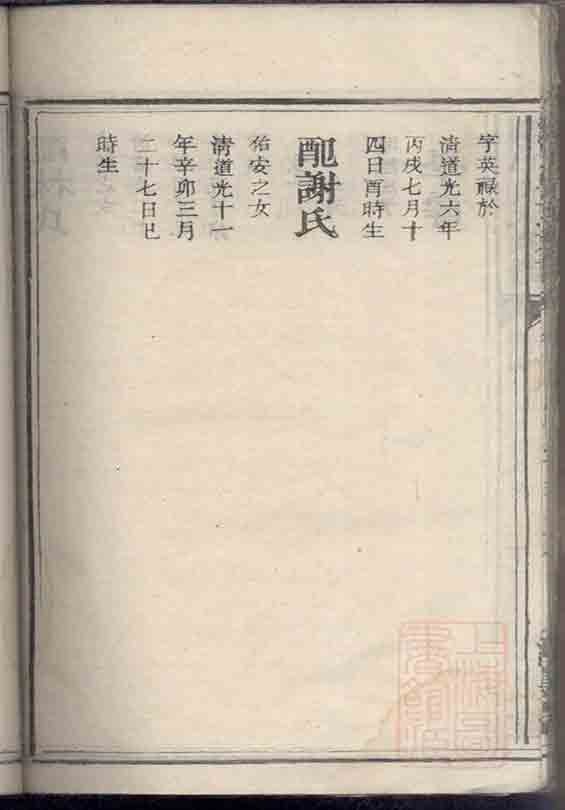 字英禄於
清道光六年
丙戌七月十
四日酉時生
配謝氏
佑安之女
清道光十一
年辛卯三月
二十七日巳
時生
上海圖
書館藏